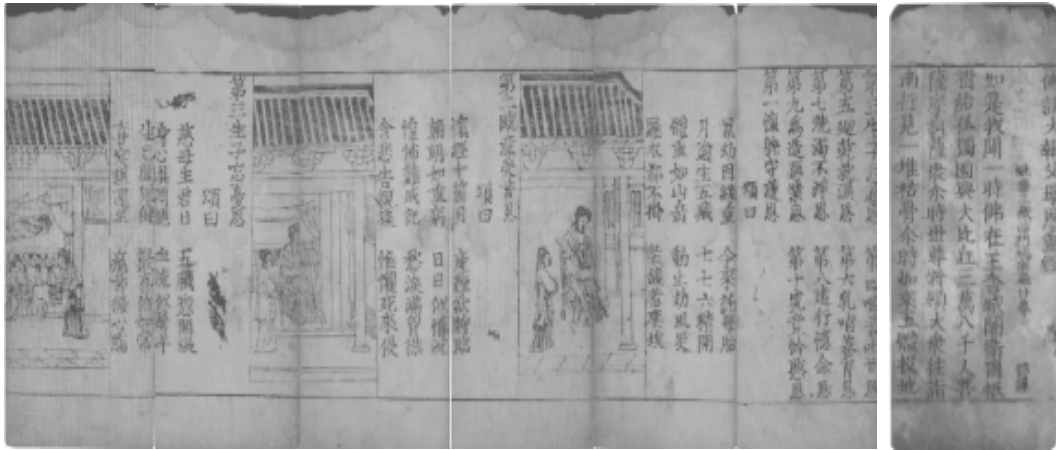 佛說大報父母恩重經
姚秦三藏法師鳩摩羅什奉 詔譯
如是我聞一時佛在王舍城闍衛國祇
樹給孤獨園與大比丘三萬八千人菩
薩摩訶薩衆尒時世尊將領大衆往詣
南行見一堆枯骨尒時如來五體投地
第三生子忘憂恩 第四咽苦吐甘恩
第五廻乾就濕恩 第六乳哺養育恩
第七洗濁不淨恩 第八遠行憶念恩
第九爲造惡業恩 第十究竟憐愍恩
第一懷躭守護恩
頌曰
累劫因緣重 今來託母胎
月逾生五臟 七七六精開
體重如山岳 動止劫風災
羅衣都不掛 粧鏡惹塵埃
第二臨產受苦恩
頌曰
懷經十箇月 產難欲將臨
朝朝如重病 日日似惛沉
惶怖難成記 愁淚滿胷襟
含悲告親族 惟懼死來侵
第三生子忘憂恩
頌曰
慈母生君日 五臟惣開張
身心俱悶絶 血流似屠羊
生已聞兒健 歡喜倍加常
喜定悲還至 痛苦徹心腸